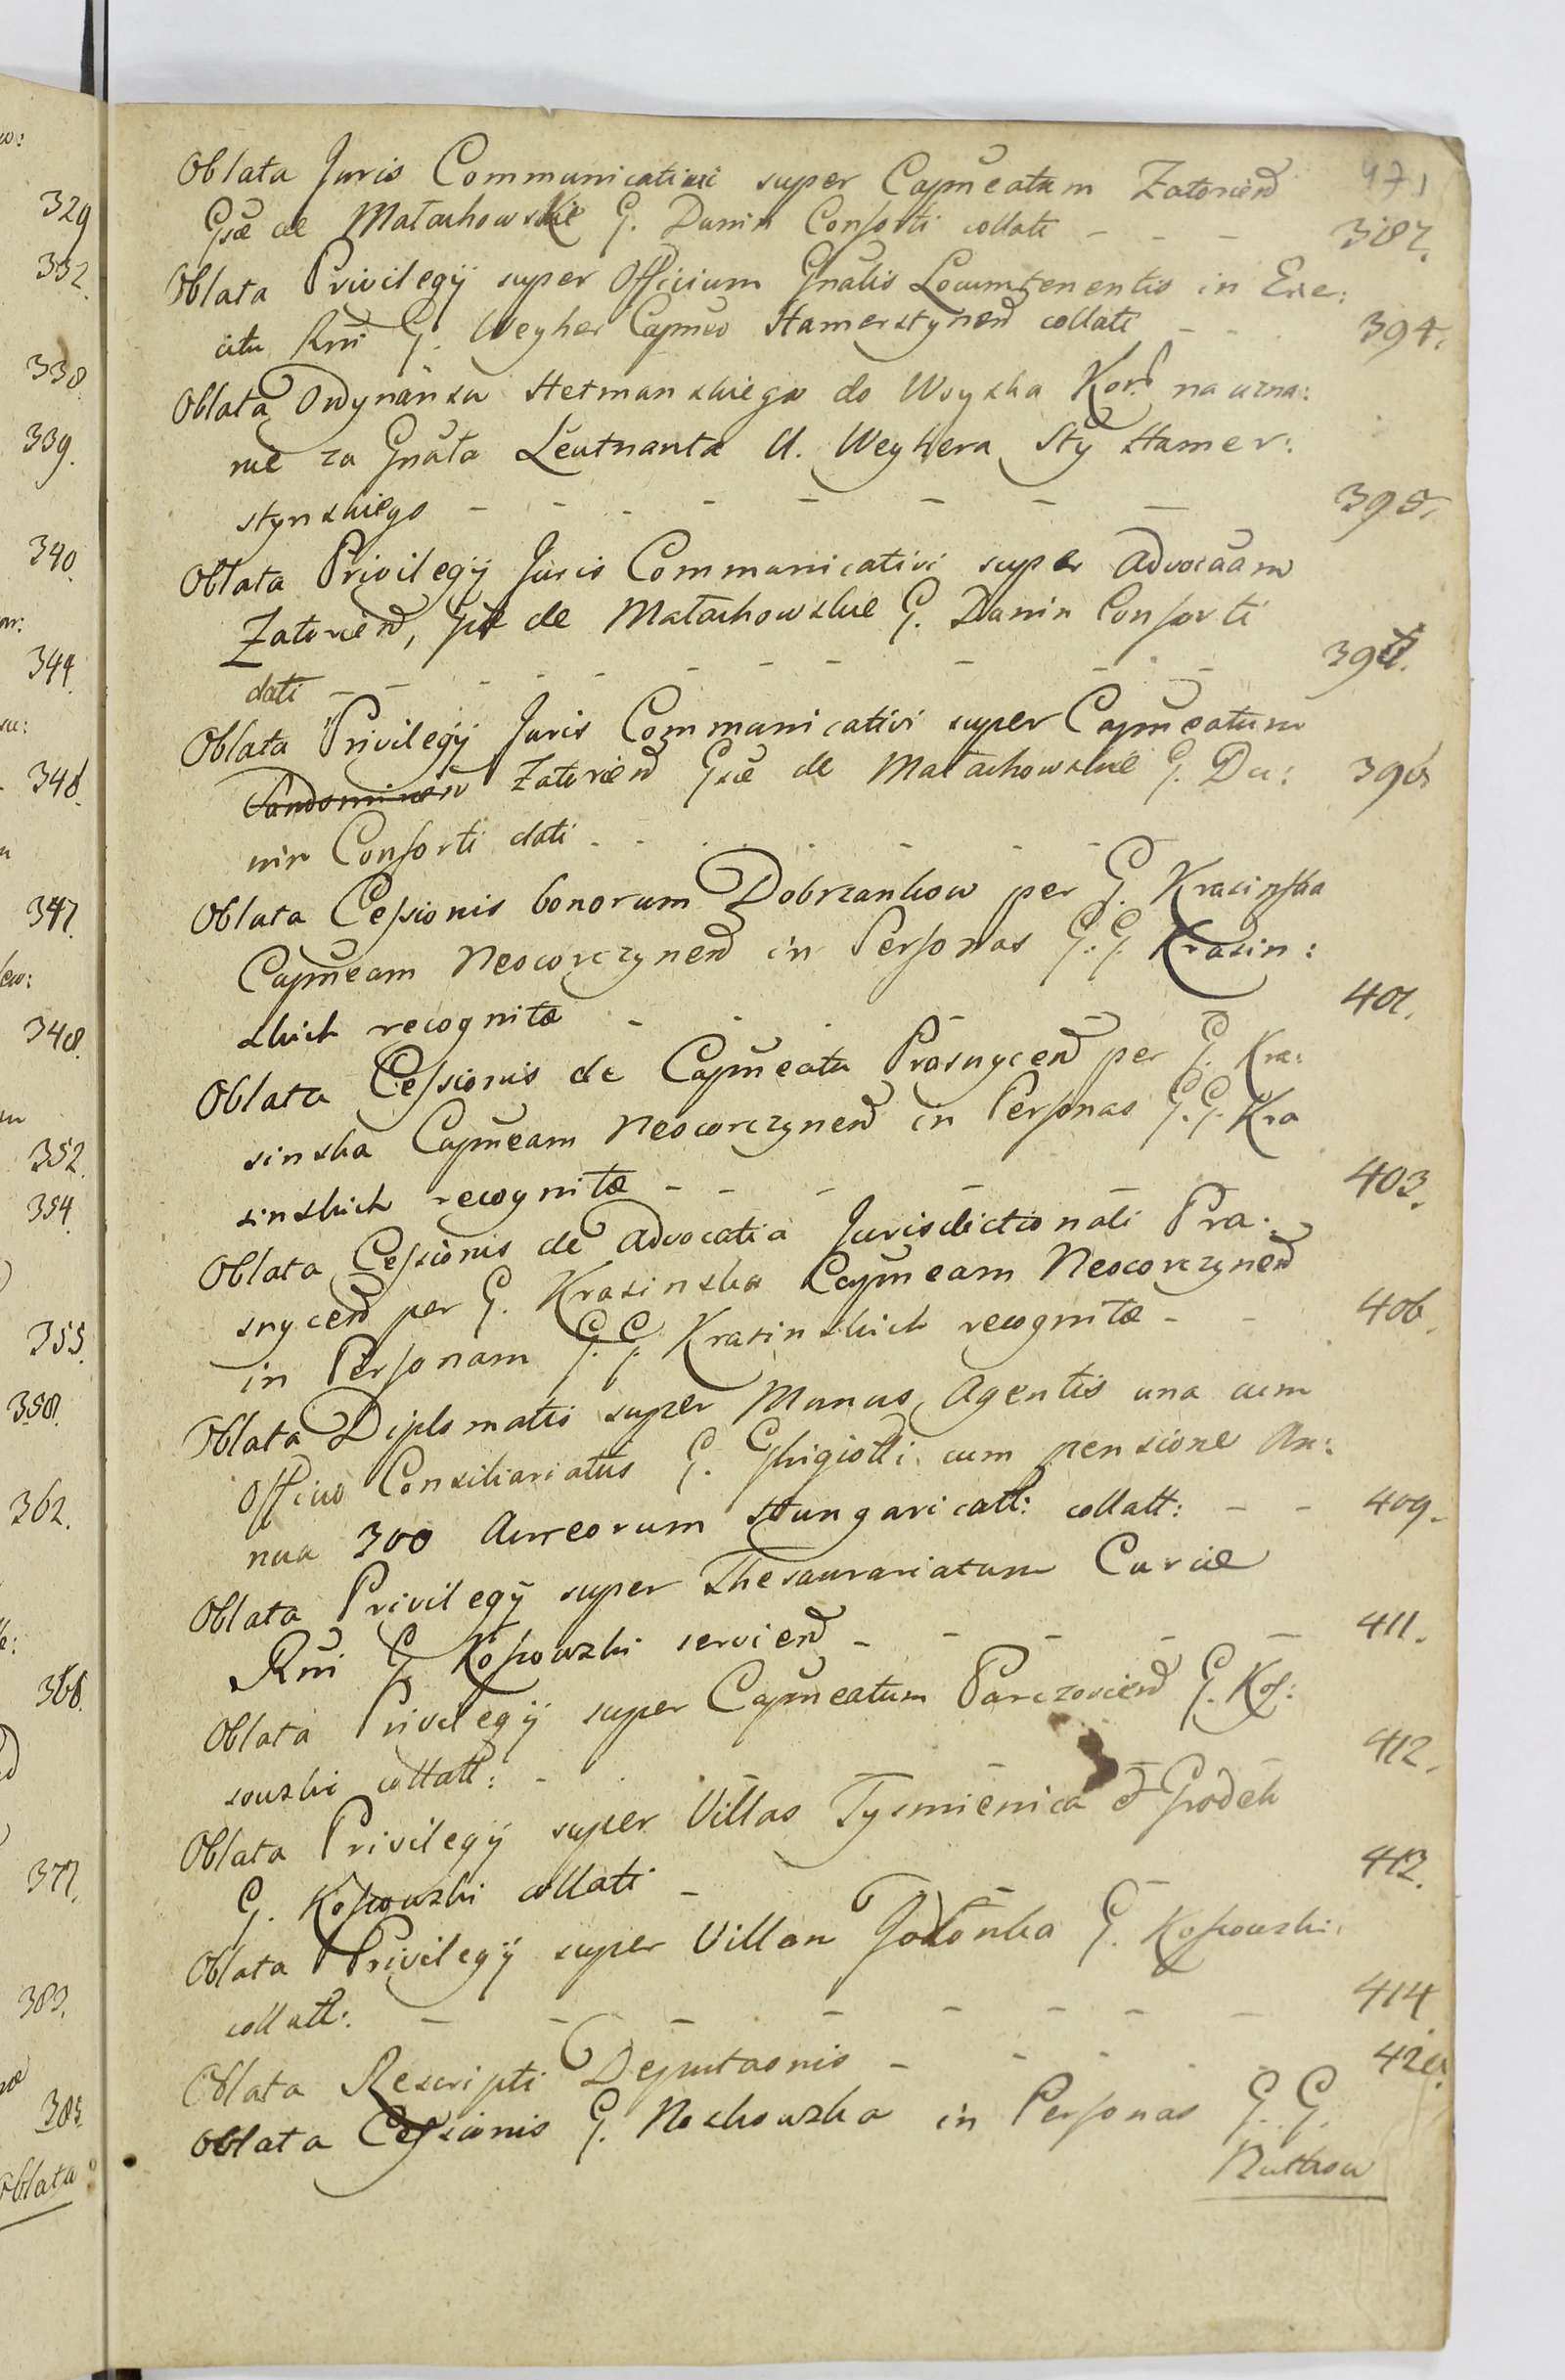 471
Oblata Juris Communicativi super Capneatum Zatorien
Gsæ de Małachowskie G. Danin Consorti collati - - - 387.
Oblata Privilegÿ super Officium Gnalis Locumtenentis in Exe:
citu Rni G. Weyher Capneo Hamerstynen collati - - 394.
Oblata Ordynansu Hetmanskiego do Woyska Kor: na uzna:
nie za Gnała Leutnanta U. Weyhera Sty Hamer:
stynskiego - - - - - - - 395.
Oblata Privilegÿ Juris Communicativi super Advocaam
Zatorien, Gsæ de Małachowskie G. Danin Consorti
dati - - - - - - - - - -
Oblata Privilegÿ Juris Communicativi super Capneatum
Sandomirien Zatorien Gsæ de Małachowskie G. Da:
nin Consorti dati - - - - - - -
Oblata Cessionis bonorum Dobrzankow per G. Krasinska
Capneam Neocorczynen in Personas G. G. Krasin:
skich recognitæ - - - - - - 401.
Oblata Cessionis de Capneatu Prasnycen per G. Kra:
sinska Capneam Neocorczynen in Personas G. G. Kra
sinskich recognitæ - - - - - 403.
Oblata Cessionis de Advocatia Jurisdictionali Pra:
snycen per G. Krasinska Capneam Neocorczynen
in Personam G. G. Krasinskich recognitæ - - 406.
Oblata Diplomatis super Munus Agentis una cum
Officio Consiliariatus G. Ghigiotti cum pensione An:
nua 300 Aureorum Hungaricall: collatt: - - 409.
Oblata Privilegÿ super Thesaurariatum Curiæ
Rni G. Kossowski servien - - - - - 411.
Oblata Privilegÿ super Capneatum Parczovien G. Kos:
sowski collatt: - - - - 412.
Oblata Privilegÿ super Villas Tysmienica et Grodek
G. Kossowski collati - 413.
Oblata Privilegÿ super Villam G. Kossowski
collatt: - - - - - - - - 414
Oblata Rescripti Deputaonis - - - -
Oblata Cessionis G. Noskowska in Personas G. G.
329
332.
338.
339.
340.
344.
347.
348.
352.
354.
355.
358.
362.
368.
377.
383.
385.
Oblata: